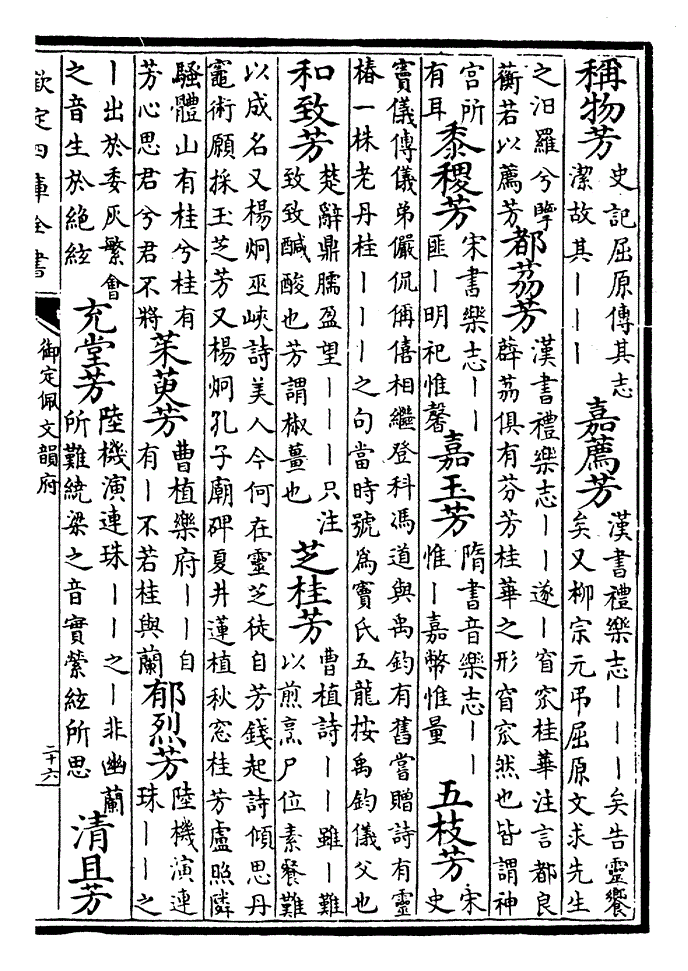 稱物芳 史記屈原傳其志潔故其丨丨丨 嘉薦芳 漢書禮樂志丨丨丨矣告靈饗矣又柳宗元弔屈原文求先生
之汨羅兮擥蘅若以薦芳 都荔芳 漢書禮樂志丨丨遂丨窅窊桂華注言都良薜荔俱有芬芳桂華之形窅窊然也皆謂神
宫所有耳 黍稷芳 宋書樂志丨丨匪丨明祀惟馨 嘉玉芳 隋書音樂志丨丨惟丨嘉幣惟量 五枝芳 宋史
竇儀傳儀弟儼侃偁僖相繼登科馮道與禹鈞有舊嘗贈詩有靈椿一株老丹桂丨丨丨之句當時號為竇氏五龍按禹鈞儀父也
和致芳 楚辭鼎臑盈望丨丨丨只注致致醎酸也芳謂椒薑也 芝桂芳 曹植詩丨丨雖丨難以煎烹尸位素餐難
以成名又楊炯巫峽詩美人今何在靈芝徒自芳錢起詩傾思丹竈術願採玉芝芳又楊炯孔子廟碑夏井蓮植秋窓桂芳盧照隣
騷體山有桂兮桂有芳心思君兮君不將 茱萸芳 曹植樂府丨丨自有丨不若桂與蘭 郁烈芳 陸機演連珠丨丨之
丨出於委灰繁會之音生於絶絃 充堂芳 陸機演連珠丨丨之丨非幽蘭所難繞梁之音實縈絃所思 清且芳
欽定四庫全書 御定佩文韻府 二十六